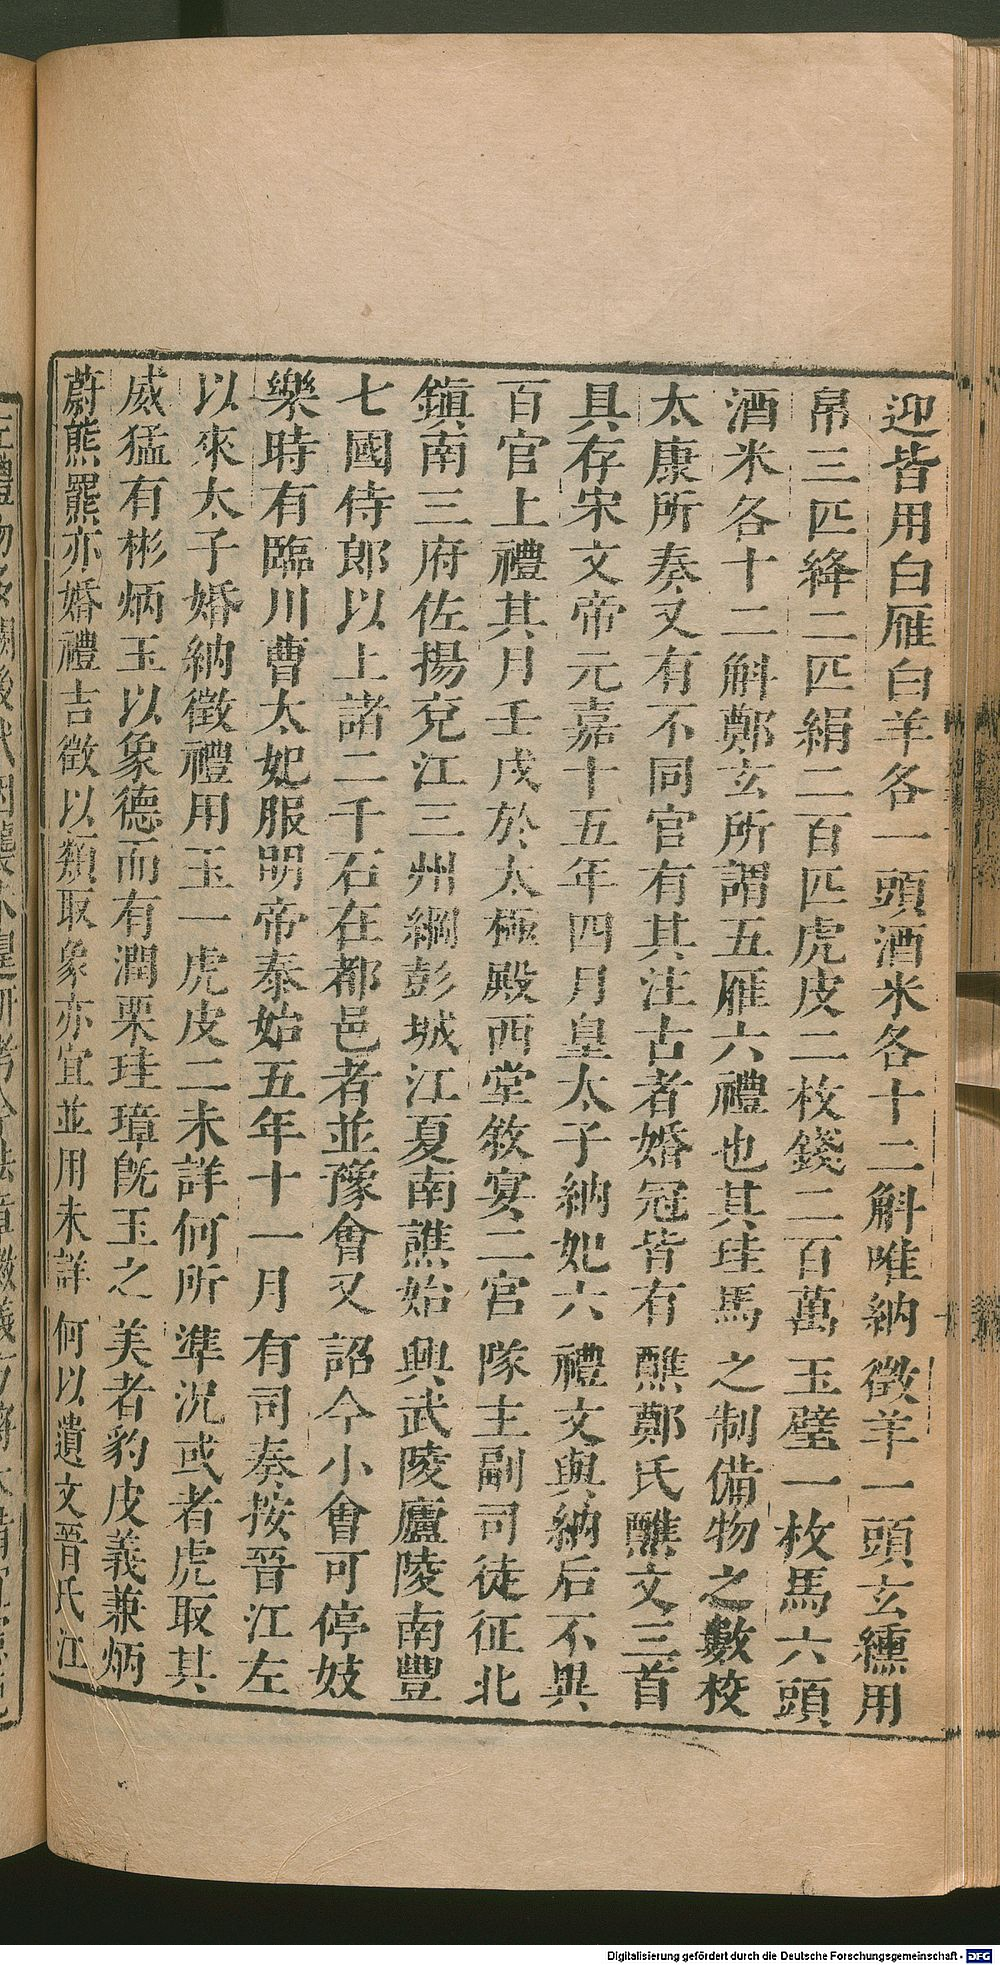 迎皆用白雁白羊各一頭酒米各十二斛唯納徵羊一頭玄纁用
帛三匹絳二匹絹二百匹虎皮二枚錢二百萬玉璧一枚馬六頭
酒米各十二斛鄭玄所謂五雁六禮也其珪馬之制備物之數校
太康所奏又有不同官有其注古者婚冠皆有醮鄭氏醮文三首
具存宋文帝元嘉十五年四月皇太子納妃六禮文與納后不異
百官上禮其月壬戌於太極殿西堂敘宴二宮隊主副司徒征北
鎮南三府佐揚兗江三州綱彭城江夏南譙始興武陵廬陵南豐
七國侍郎以上諸二千石在都邑者並豫會又詔今小會可停妓
樂時有臨川曹太妃服明帝泰始五年十一月有司奏按晉江左
以來太子婚納徵禮用玉一虎皮二未詳何所準況或者虎取其
威猛有彬炳玉以象德而有潤栗珪璋既玉之美者豹皮義兼炳
蔚熊羆亦婚禮吉徵以類取象亦宜並用未詳何以遺文晉氏江
Digitalisierung gefördert durch die Deutsche Forschungsgemeinschaft - DFG